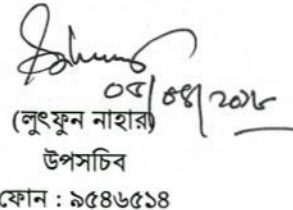 ০৫/০৪/২০১৮
(লুৎফুন নাহার)
উপসচিব
ফোন : ৯৫৪৬৫১৪